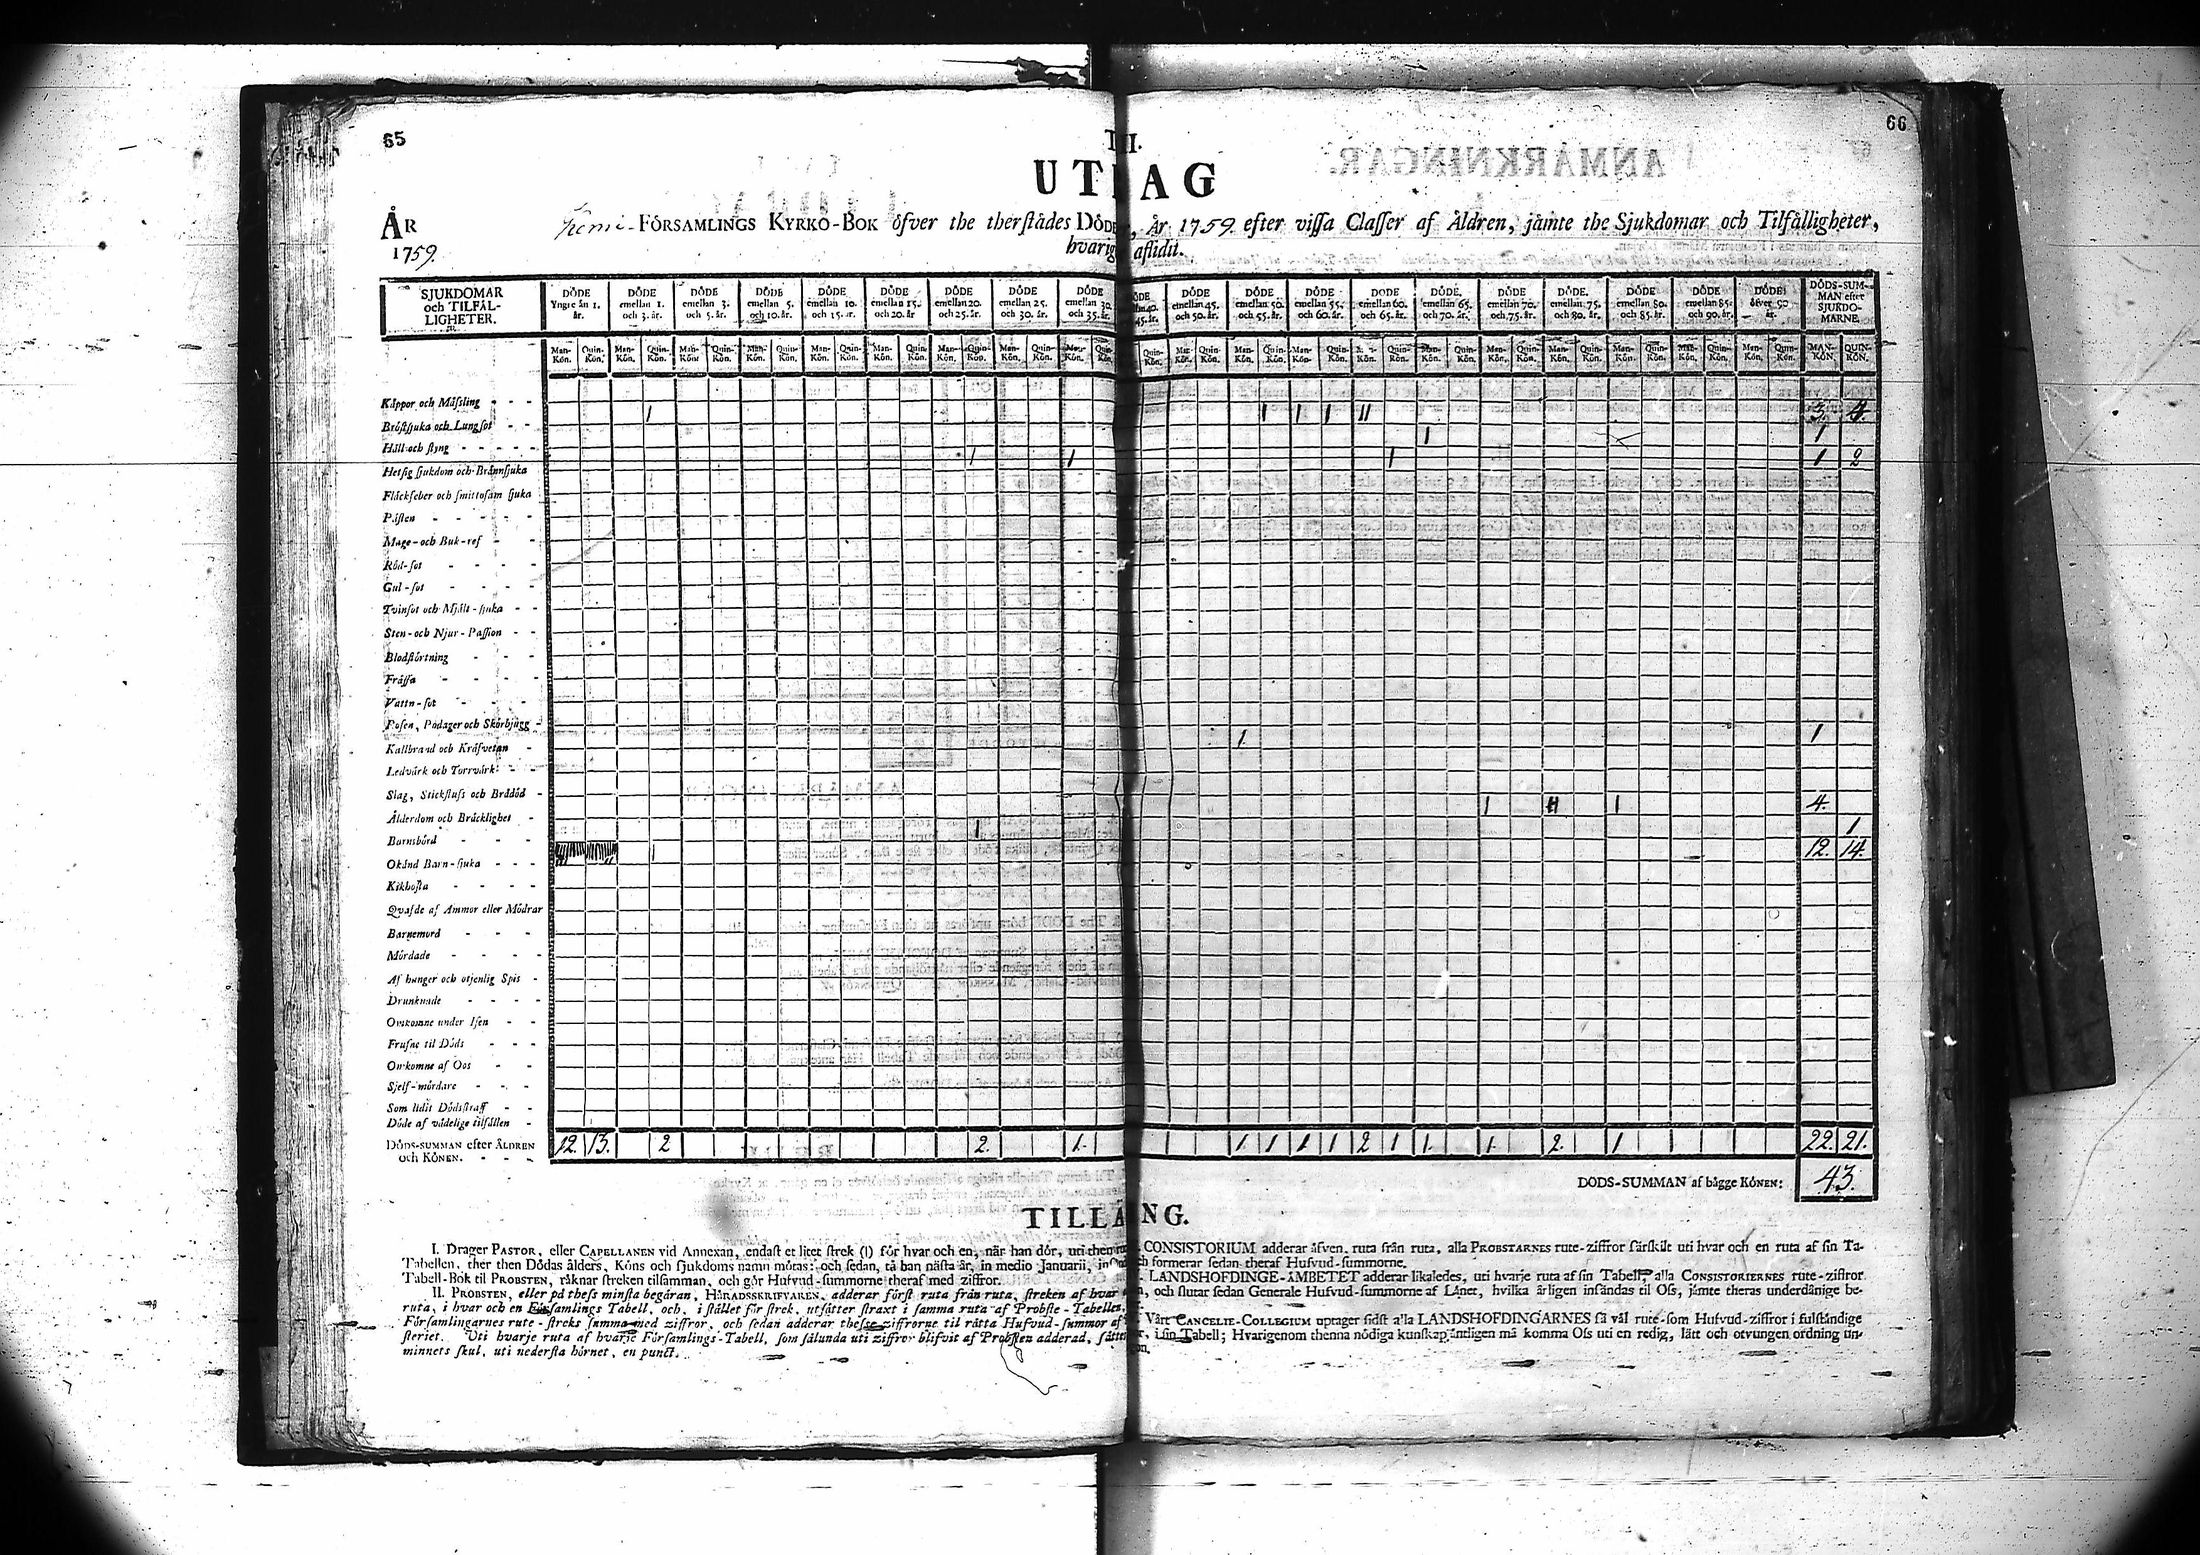 65
66
III.
UTDRAG
ÅR
1759.
Kemi-FÖRSAMLINGS KYRKO-BOK öfver the therstädes DÖDE, År 1759. efter vissa Classer af Åldren, jämte the Sjukdomar och Tilfälligheter,
hvarigenom aflidit.
SJUKDOMAR och TILFÄLLIGHETER.
DÖDE Yngre än 1. år.
DÖDE emellan 1. och 3. år.
DÖDE emellan 3. och 5. år.
DÖDE emellan 5. och 10. år.
DÖDE emellan 10. och 15. år.
DÖDE emellan 15. och 20 år
DÖDE emellan 20. och 25. år.
DÖDE emellan 25. och 30. år.
DÖDE emellan 30. och 35. år.
DÖDE 40. 45. år.
DÖDE emellan 45. och 50. år.
DÖDE emellan 50. och 55. år.
DÖDE emellan 55. och 60. år.
DÖDE emellan 60. och 65. år.
DÖDE emellan 65. och 70. år.
DÖDE emellan 70. och 75. år.
DÖDE emellan 75. och 80. år.
DÖDE emellan 80. och 85. år.
DÖDE emellan 85. och 90. år.
DÖDE öfver 90 år.
DÖDS-SUMMAN efter SJUKDOMARNE.
Man-Kön. Quin-Kön. Man-Kön. Quin-Kön. Man-Kön. Quin-Kön. Man-Kön. Quin-Kön. Man-Kön. Quin-Kön. Man-Kön. Quin-Kön. Man-Kön. Quin-Kön. Man-Kön. Quin-Kön. Man-Kön. Quin-Kön. Quin-Kön. Man-Kön. Quin-Kön. Man-Kön. Quin-Kön. Man-Kön. Quin-Kön. Man-Kön. Quin-Kön. Man-Kön. Quin-Kön. Man-Kön. Quin-Kön. Man-Kön. Quin-Kön. Man-Kön. Quin-Kön. Man-Kön. Quin-Kön. Man-Kön. Quin-Kön. MAN-KÖN. QUIN-KÖN.
Kåppor och Mäßling - - -
1 1 1 1 11 3. 4.
Bröstsjuka och Lungsot - -
1 1
Håll och styng - - - -
1 1 1 1 2
Hetsig sjukdom och Brännsjuka
Fläckfeber och smittosam sjuka
Påsten - - - - -
Mage- och Buk-ref - -
Röd-sot - - - -
Gul-sot - - - -
Tvinsot och Mjält-sjuka - -
Sten- och Njur-Passion - -
Blodstörtning - - -
Fråssa - - - -
Vattn-sot - - - -
Rosen, Podager och Skörbjugg -
Kallbrand och Kräfvetan -
1. 1
Ledvärk och Torrvärk - -
Slag, Stickfluss och Brådöd -
1 11 1 4.
Ålderdom och Bräcklighet -
1 1
Barnsbörd - - - -
1 12. 14.
Okänd Barn-sjuka - - -
Kikhosta - - - -
Qvafde af Ammor eller Mödrar
Barnemord - - -
Mördade - - - -
Af hunger och otjenlig Spis -
Drunknade - - - -
Omkomne under Isen - -
Frusne til Döds - - -
Omkomne af Oos - -
Sjelf-mördare - - -
Som lidit Dödsstraff - -
Döde af vådelige tilfällen -
DÖDS-SUMMAN efter ÅLDREN
och KÖNEN. - - -
12. 13. 2 2. 1. 1. 1 1 1 2 1 1. 1. 2. 1 22. 21.
DÖDS-SUMMAN af bägge KÖNEN: 43.
TILLÄNG.
I. Drager PASTOR, eller CAPELLANEN vid Annexan, endast et litet strek (1) för hvar och en, när han dör, uti then
Tabellen, ther then Dödas ålders, Köns och sjukdoms namn mötas: och sedan, tå han nästa år, in medio Januarii,
Tabell-Bok til PROBSTEN, räknar streken tilsamman, och gör Hufvud-summorne theraf med ziffror.
II. PROBSTEN, eller på thess minsta begäran, HÄRADSSKRIFVAREN, adderar först ruta från ruta, streken af hvar
ruta, i hvar och en Församlings Tabell, och, i stället för strek, utsätter straxt i samma ruta af Probste-Tabellen,
Församlingarnes rute-streks summa med ziffror, och sedan adderar thesse ziffrorne til rätta Hufvud-summor af
steriet. Uti hvarje ruta af hvarje Församlings-Tabell, som sålunda uti ziffror blifvit af Probsten adderad, sätter
minnets skul, uti nedersta hörnet, en punct.
CONSISTORIUM adderar äfven, ruta från ruta, alla PROBSTARNES rute-ziffror särskilt uti hvar och en ruta af sin Ta-
och formerar sedan theraf Hufvud-summorne.
LANDSHÖFDINGE-ÄMBETET adderar likaledes, uti hvarje ruta af sin Tabell, alla CONSISTORIERNES rute-ziffror
och slutar sedan Generale Hufvud-summorne af Länet, hvilka årligen insändas til Oss, jämte theras underdånige be-
Vårt CANCELIE-COLLEGIUM uptager sidst alla LANDSHÖFDINGARNES så väl rute- som Hufvud-ziffror i fulständige
i sin Tabell; Hvarigenom thenna nödiga kunskap äntligen må komma Oss uti en redig, lätt och otvungen ordning un-